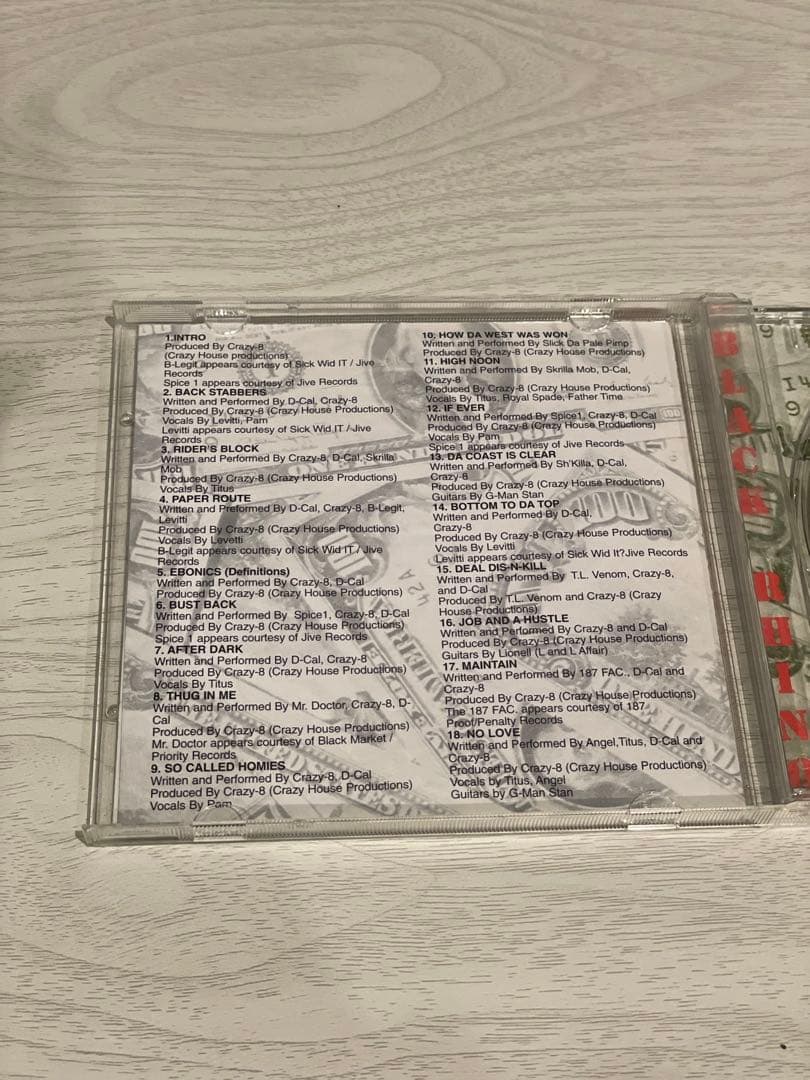 1.INTRO
Produced By Crazy-8
(Crazy House productions)
B-Legit appears courtesy of Sick Wid IT / Jive
Records
Spice 1 appears courtesy of Jive Records
2. BACK STABBERS
Written and Performed By D-Cal, Crazy-8
Produced By Crazy-8 (Crazy House Productions)
Vocals By Levitti, Pam
Levitti appears courtesy of Sick Wid IT / Jive
Records
3. RIDER'S BLOCK
Written and Performed By Crazy-8, D-Cal, Skrilla
Mob
Produced By Crazy-8 (Crazy House Productions)
Vocals By Titus
4. PAPER ROUTE
Written and Preformed By D-Cal, Crazy-8, B-Legit,
Levitti
Produced By Crazy-8 (Crazy House Productions)
Vocals By Levetti
B-Legit appears courtesy of Sick Wid IT / Jive
Records
5. EBONICS (Definitions)
Written and Performed By Crazy-8, D-Cal
Produced By Crazy-8 (Crazy House Productions)
6. BUST BACK
Written and Performed By Spice1, Crazy-8, D-Cal
Produced By Crazy-8 (Crazy House Productions)
Spice 1 appears courtesy of Jive Records
7. AFTER DARK
Written and Performed By D-Cal, Crazy-8
Produced By Crazy-8 (Crazy House Productions)
Vocals By Titus
8. THUG IN ME
Written and Performed By Mr. Doctor, Crazy-8, D-
Cal
Produced By Crazy-8 (Crazy House Productions)
Mr. Doctor appears courtesy of Black Market /
Priority Records
9. SO CALLED HOMIES
Written and Performed By Crazy-8, D-Cal
Produced By Crazy-8 (Crazy House Productions)
Vocals By Pam
10. HOW DA WEST WAS WON
Written and Performed By Slick Da Pale Pimp
Produced By Crazy-8 (Crazy House Productions)
11. HIGH NOON
Written and Performed By Skrilla Mob, D-Cal,
Crazy-8
Produced By Crazy-8 (Crazy House Productions)
Vocals By Titus, Royal Spade, Father Time
12. IF EVER
Written and Performed By Spice1, Crazy-8, D-Cal
Produced By Crazy-8 (Crazy House Productions)
Vocals By Pam
Spice 1 appears courtesy of Jive Records
13. DA COAST IS CLEAR
Written and Performed By Sh'Killa, D-Cal,
Crazy-8
Produced By Crazy-8 (Crazy House Productions)
Guitars By G-Man Stan
14. BOTTOM TO DA TOP
Written and Performed By D-Cal,
Crazy-8
Produced By Crazy-8 (Crazy House Productions)
Vocals By Levitti
Levitti appears courtesy of Sick Wid It?Jive Records
15. DEAL DIS-N-KILL
Written and Performed By T.L. Venom, Crazy-8,
and D-Cal
Produced By T.L. Venom and Crazy-8 (Crazy
House Productions)
16. JOB AND A HUSTLE
Written and Performed By Crazy-8 and D-Cal
Produced By Crazy-8 (Crazy House Productions)
Guitars By Lionell (L and L Affair)
17. MAINTAIN
Written and Performed By 187 FAC., D-Cal and
Crazy-8
Produced By Crazy-8 (Crazy House Productions)
The 187 FAC. appears courtesy of 187
Proof/Penalty Records
18. NO LOVE
Written and Performed By Angel,Titus, D-Cal and
Crazy-8
Produced By Crazy-8 (Crazy House Productions)
Vocals by Titus, Angel
Guitars by G-Man Stan
BLACK RHINO